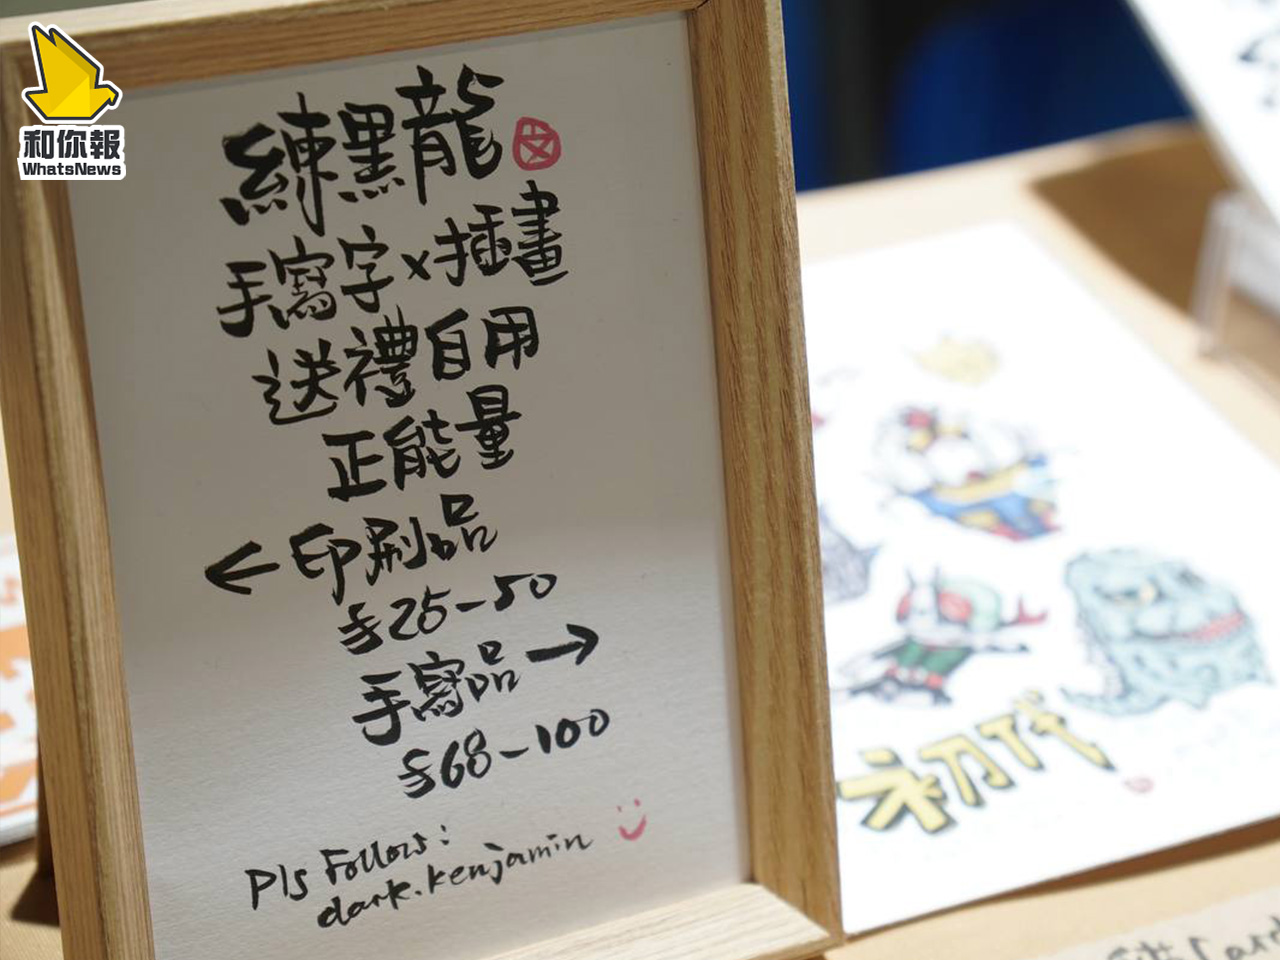 和你報
WhatsNews
練黑龍
手寫字x插畫
送禮自用
正能量
←印刷品
$25-50
手寫品→
$68-100
Pls Follow:
dark.kenjamin
初代